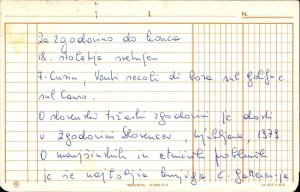 N.
Za zgodovino do konca
18. stoletja sretujem
F. Cusin, Venti secoli di bora sul golfo e
sul Carso.
O slovenski tržaški zgodovini je dosti
v Zgodovini Slovencev, Ljubljana, 1979
O manjšinskih in etničnih problemih
je še najboljša knjiga C. Gatterer